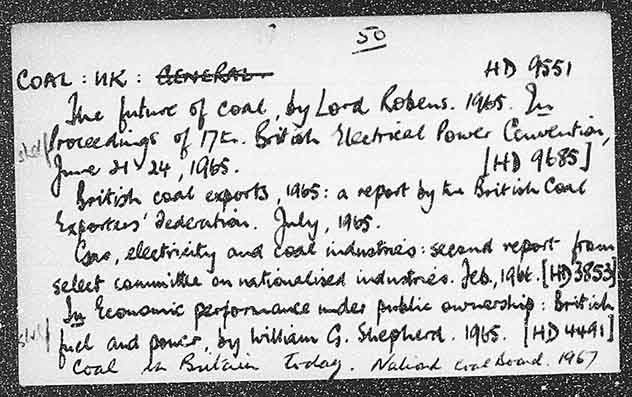 50
COAL : UK : GENERAL HD 9551
The future of coal, by Lord Robens. 1965. In
shelf Proceedings of 17th. British Electrical Power Convention,
June 21-24, 1965. [HD 9685]
British coal exports, 1965: a report by the British Coal
Exporters' Federation. July, 1965.
Gas, electricity and coal industries: second report from
select committee on nationalised industries. Feb, 1966. [HD3853]
In Economic performance under public ownership: British
shelf fuel and power, by William G. Shepherd. 1965. [HD4491]
Coal in Britain today. National Coal Board. 1967